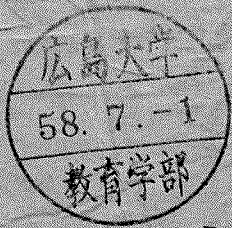 広島大学
58. 7. -1
教育学部